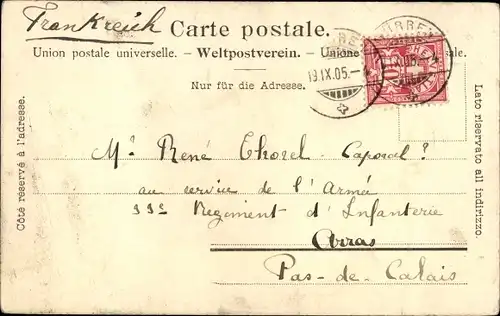 Frankreich
Carte postale.
Union postale universelle. – Weltpostverein. – Unione postale universale.
Nur für die Adresse.
MÜRREN
19.IX.05.–
Côté réservé à l'adresse.
Lato riservato all indirizzo.
Mr René Thorel Caporal
au service de l'Armée
33e Regiment d'Infanterie
Arras
Pas-de-Calais